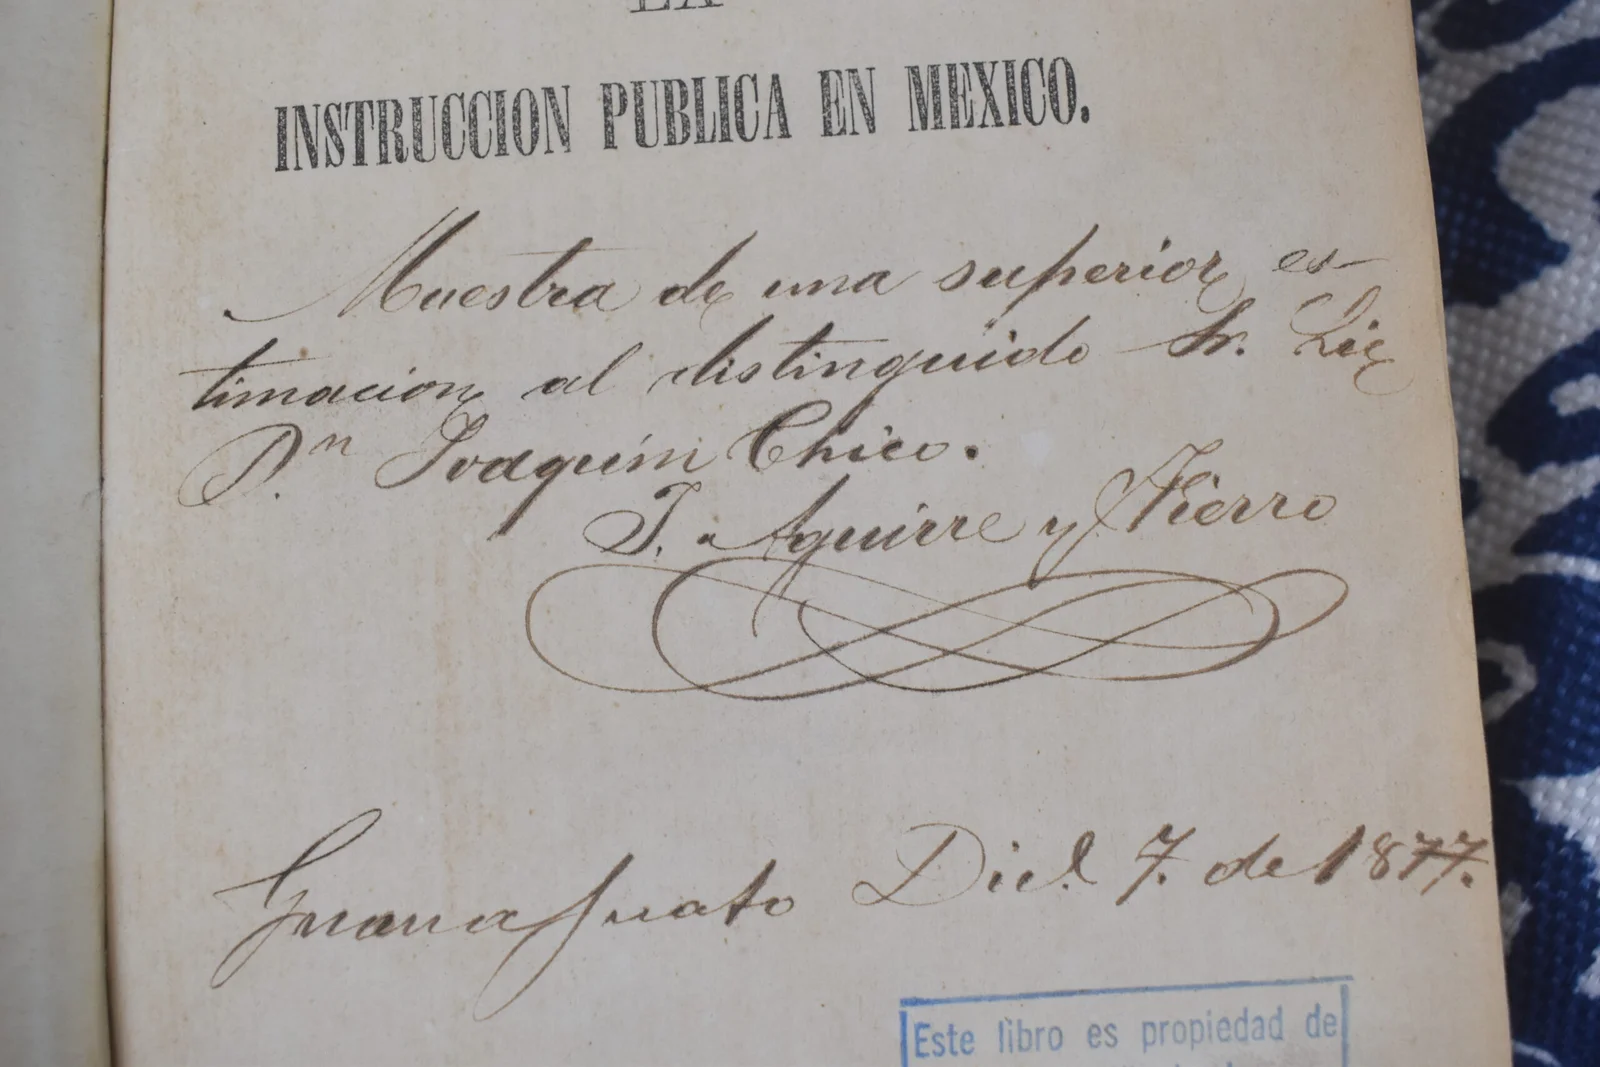 LA
INSTRUCCION PUBLICA EN MEXICO.
Muestra de una superior es-
timacion al distinguido Sr. Lic
D.n Joaquin Chico.
J. Aguirre y Fierro
Guanajuato Dice. 7. de 1877.
Este libro es propiedad de